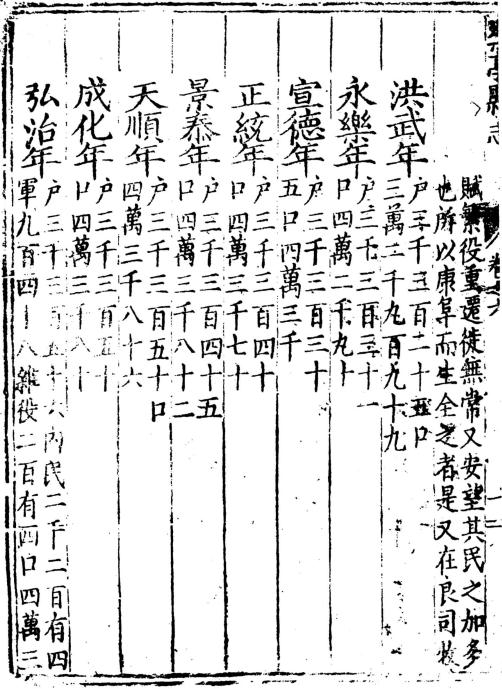 賦繁役重遷徙無常又安望其民之加多
也所以康阜而生全之者是又在良司牧
洪武年
户三千三百二十五口
三萬二千九百九十九
永樂年
户三千三百三十一
口四萬二千九十
宣德年
户三千三百三十
五口四萬三千
正統年
户三千三百四十
口四萬三千七十
景泰年
户三千三百四十五
口四萬三千八十二
天順年
户三千三百五十口
四萬三千八十六
成化年
户三千三百五十
口四萬三千八十
弘治年
户三千三百五十六内民二千二百有四
軍九百四十八雜役二百有四口四萬三